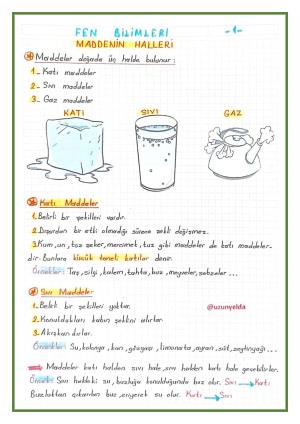 FEN BİLİMLERİ
-1-
MADDENİN HALLERİ
Maddeler doğada üç halde bulunur:
1- Katı maddeler
2- Sıvı maddeler
3- Gaz maddeler
KATI
SIVI
GAZ
Katı Maddeler
1. Belirli bir şekilleri vardır.
2. Dışarıdan bir etki olmadığı sürece şekli değişmez.
3. Kum, un, toz şeker, mercimek, tuz gibi maddeler de katı madde-
dir. Bunlara küçük taneli katılar denir.
Örnekler: Taş, silgi, kalem, tahta, buz, meyveler, sebzeler ...
Sıvı Maddeler
1. Belirli bir şekilleri yoktur.
@uzunyelda
2. Konuldukları kabın şeklini alırlar.
3. Akışkandırlar.
Örnekler: Su, kolonya, kan, gözyaşı, limonata, ayran, süt, zeytinyağı ...
Maddeler katı halden sıvı hale, sıvı halden katı hale geçebilirler.
Örnek: Sıvı haldeki su, buzluğa konulduğunda buz olur. Sıvı → Katı
Buzluktan çıkarılan buz, eriyerek su olur. Katı → Sıvı